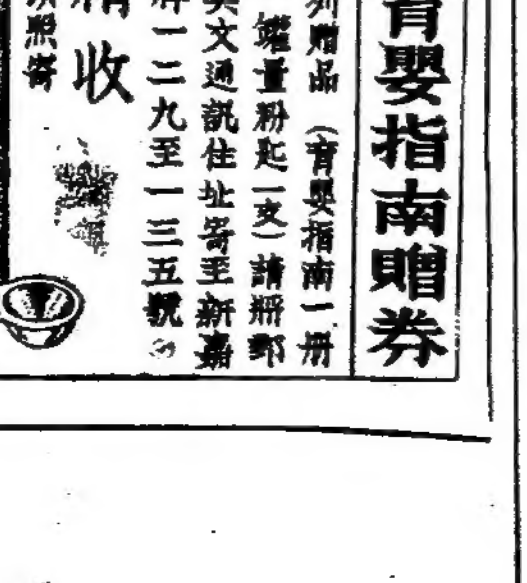 育嬰指南贈券
列贈品（育嬰指南一册
罐量粉匙一支）請將郵
英文通訊住址寄至新嘉
牌一二九至一三五號
收
照寄